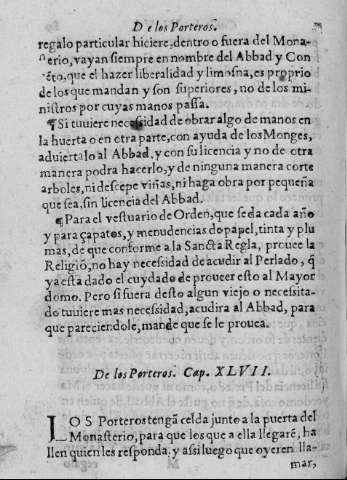 De los Porteros.
regalo particular hiciere, dentro o fuera del Mona-
sterio, vayan siempre en nombre del Abbad y Con
uẽto, que el hazer liberalidad y limosna, es proprio
de los que mandan y son superiores, no de los mi-
nistros por cuyas manos passa.
¶ Si tuuiere necessidad de obrar algo de manos en
la huerta o en otra parte, con ayuda de los Monges,
aduiertalo al Abbad, y con su licencia y no de otra
manera podra hacerlo, y de ninguna manera corte
arboles, ni descepe viñas, ni haga obra por pequeña
que sea, sin licencia del Abbad.
¶ Para el vestuario de Orden, que se da cada año
y para çapatos, y menudencias do papel, tinta y plu
mas, de que conforme a la Sancta Regla, prouee la
Religiõ, no hay necessidad de acudir al Perlado, q̃
ya esta dado el cuydado de proueer esto al Mayor
domo. Pero si fuera desto algun viejo o necesita-
do tuuiere mas necessidad, acudira al Abbad, para
que pareciendole, mande que se le prouea.
De los Porteros. Cap. XLVII.
LOS Porteros tengã celda junto a la puerta del
Monasterio, para que los que a ella llegarẽ, ha
llen quien les responda, y assi luego que oyeren lla-
mar,
M